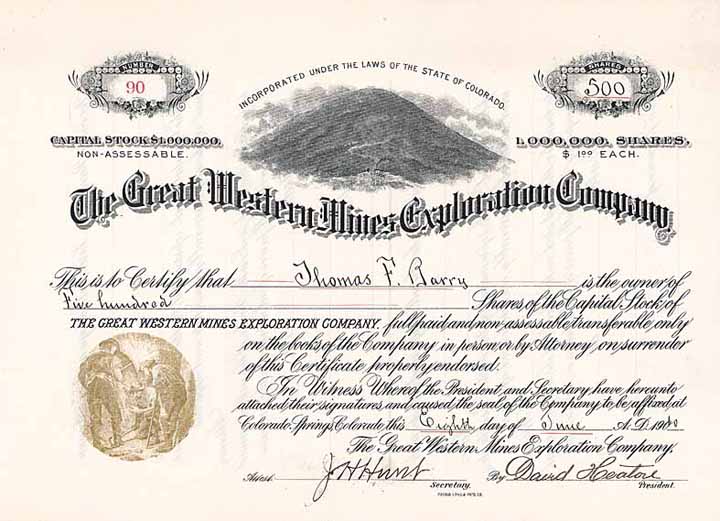 NUMBER
90
SHARES
500
INCORPORATED UNDER THE LAWS OF THE STATE OF COLORADO.
CAPITAL STOCK $1,000,000.
NON-ASSESSABLE.
1,000,000, SHARES,
$ 1.00 EACH.
The Great Western Mines Exploration Company,
This is to Certify that Thomas F. Barry is the owner of
Five hundred Shares of the Capital Stock of
THE GREAT WESTERN MINES EXPLORATION COMPANY, full paid and non-assessable, transferable, only
on the books of the Company in person or by Attorney, on surrender
of this Certificate properly endorsed.
In Witness Whereof, the President and Secretary, have hereunto
attached their signatures and caused the seal of the Company to be affixed, at
Colorado Springs, Colorado this Eighth day of June A.D. 19
The Great Western Mines Exploration Company,
Attest J H Hunt By David Heatore
Secretary. President.